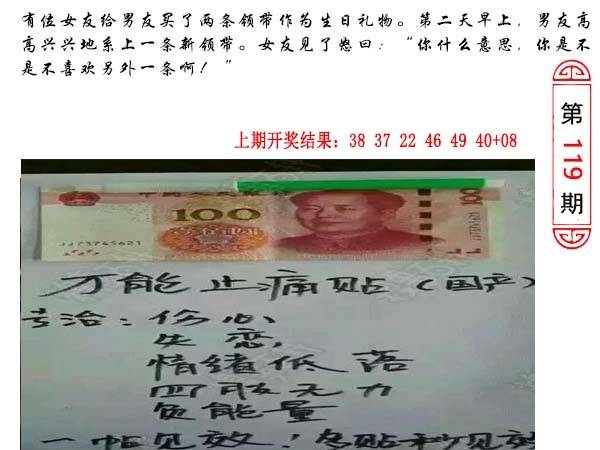 有位女友给男友买了两条领带作为生日礼物。第二天早上，男友高
高兴兴地系上一条新领带。女友见了怒曰：“你什么意思，你是不
是不喜欢另外一条啊！”
上期开奖结果：38 37 22 46 49 40+08
第119期
100
100
JJ73745621
万能止痛贴（国产）
专治：伤心、
失恋，
情绪低落
四肢无力
负能量
一帖见效！多贴秒见效